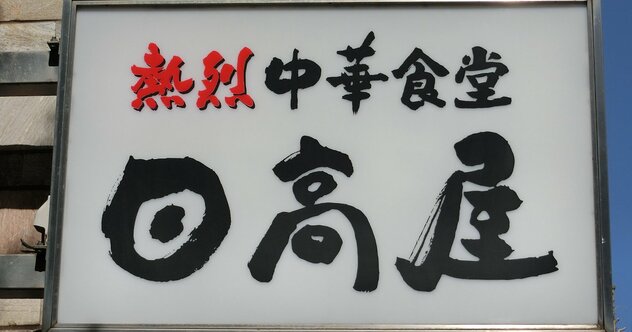 熱烈中華食堂
日高屋